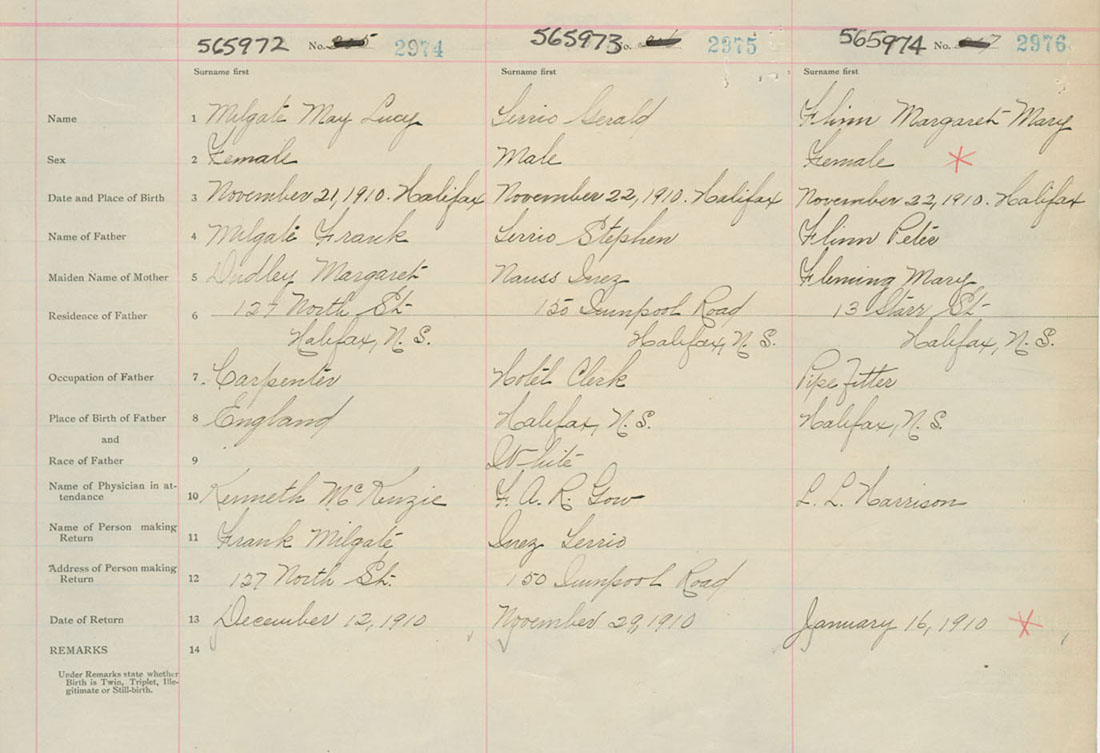 565972 No. 2974 565973 No. 2975 565974 No. 2976
Surname first Surname first Surname first
Name 1 Milgate May Lucy Serrio Gerald Flinn Margaret Mary
Sex 2 Female Male Female
Date and Place of Birth 3 November 21, 1910. Halifax November 22, 1910. Halifax November 22, 1910. Halifax
Name of Father 4 Milgate Frank Serrio Stephen Flinn Peter
Maiden Name of Mother 5 Dudley Margaret Nauss Inez Fleming Mary
Residence of Father 6 127 North St. 150 Road 13 Starr St.
Halifax, N. S. Halifax, N. S. Halifax, N. S.
Occupation of Father 7. Carpenter Hotel Clerk Pipe Fitter
Place of Birth of Father 8 England Halifax, N. S. Halifax, N. S.
and
Race of Father 9 White
Name of Physician in at-
tendance 10 Kenneth McKenzie F. A. R. Gow L. L. Harrison
Name of Person making
Return 11 Frank Milgate Inez Serrio
Address of Person making
Return 12 127 North St. 150 Road
Date of Return 13 December 12, 1910 November 29, 1910 January 16, 1910
REMARKS 14
Under Remarks state whether
Birth is Twin, Triplet, Ille-
gitimate or Still-birth.